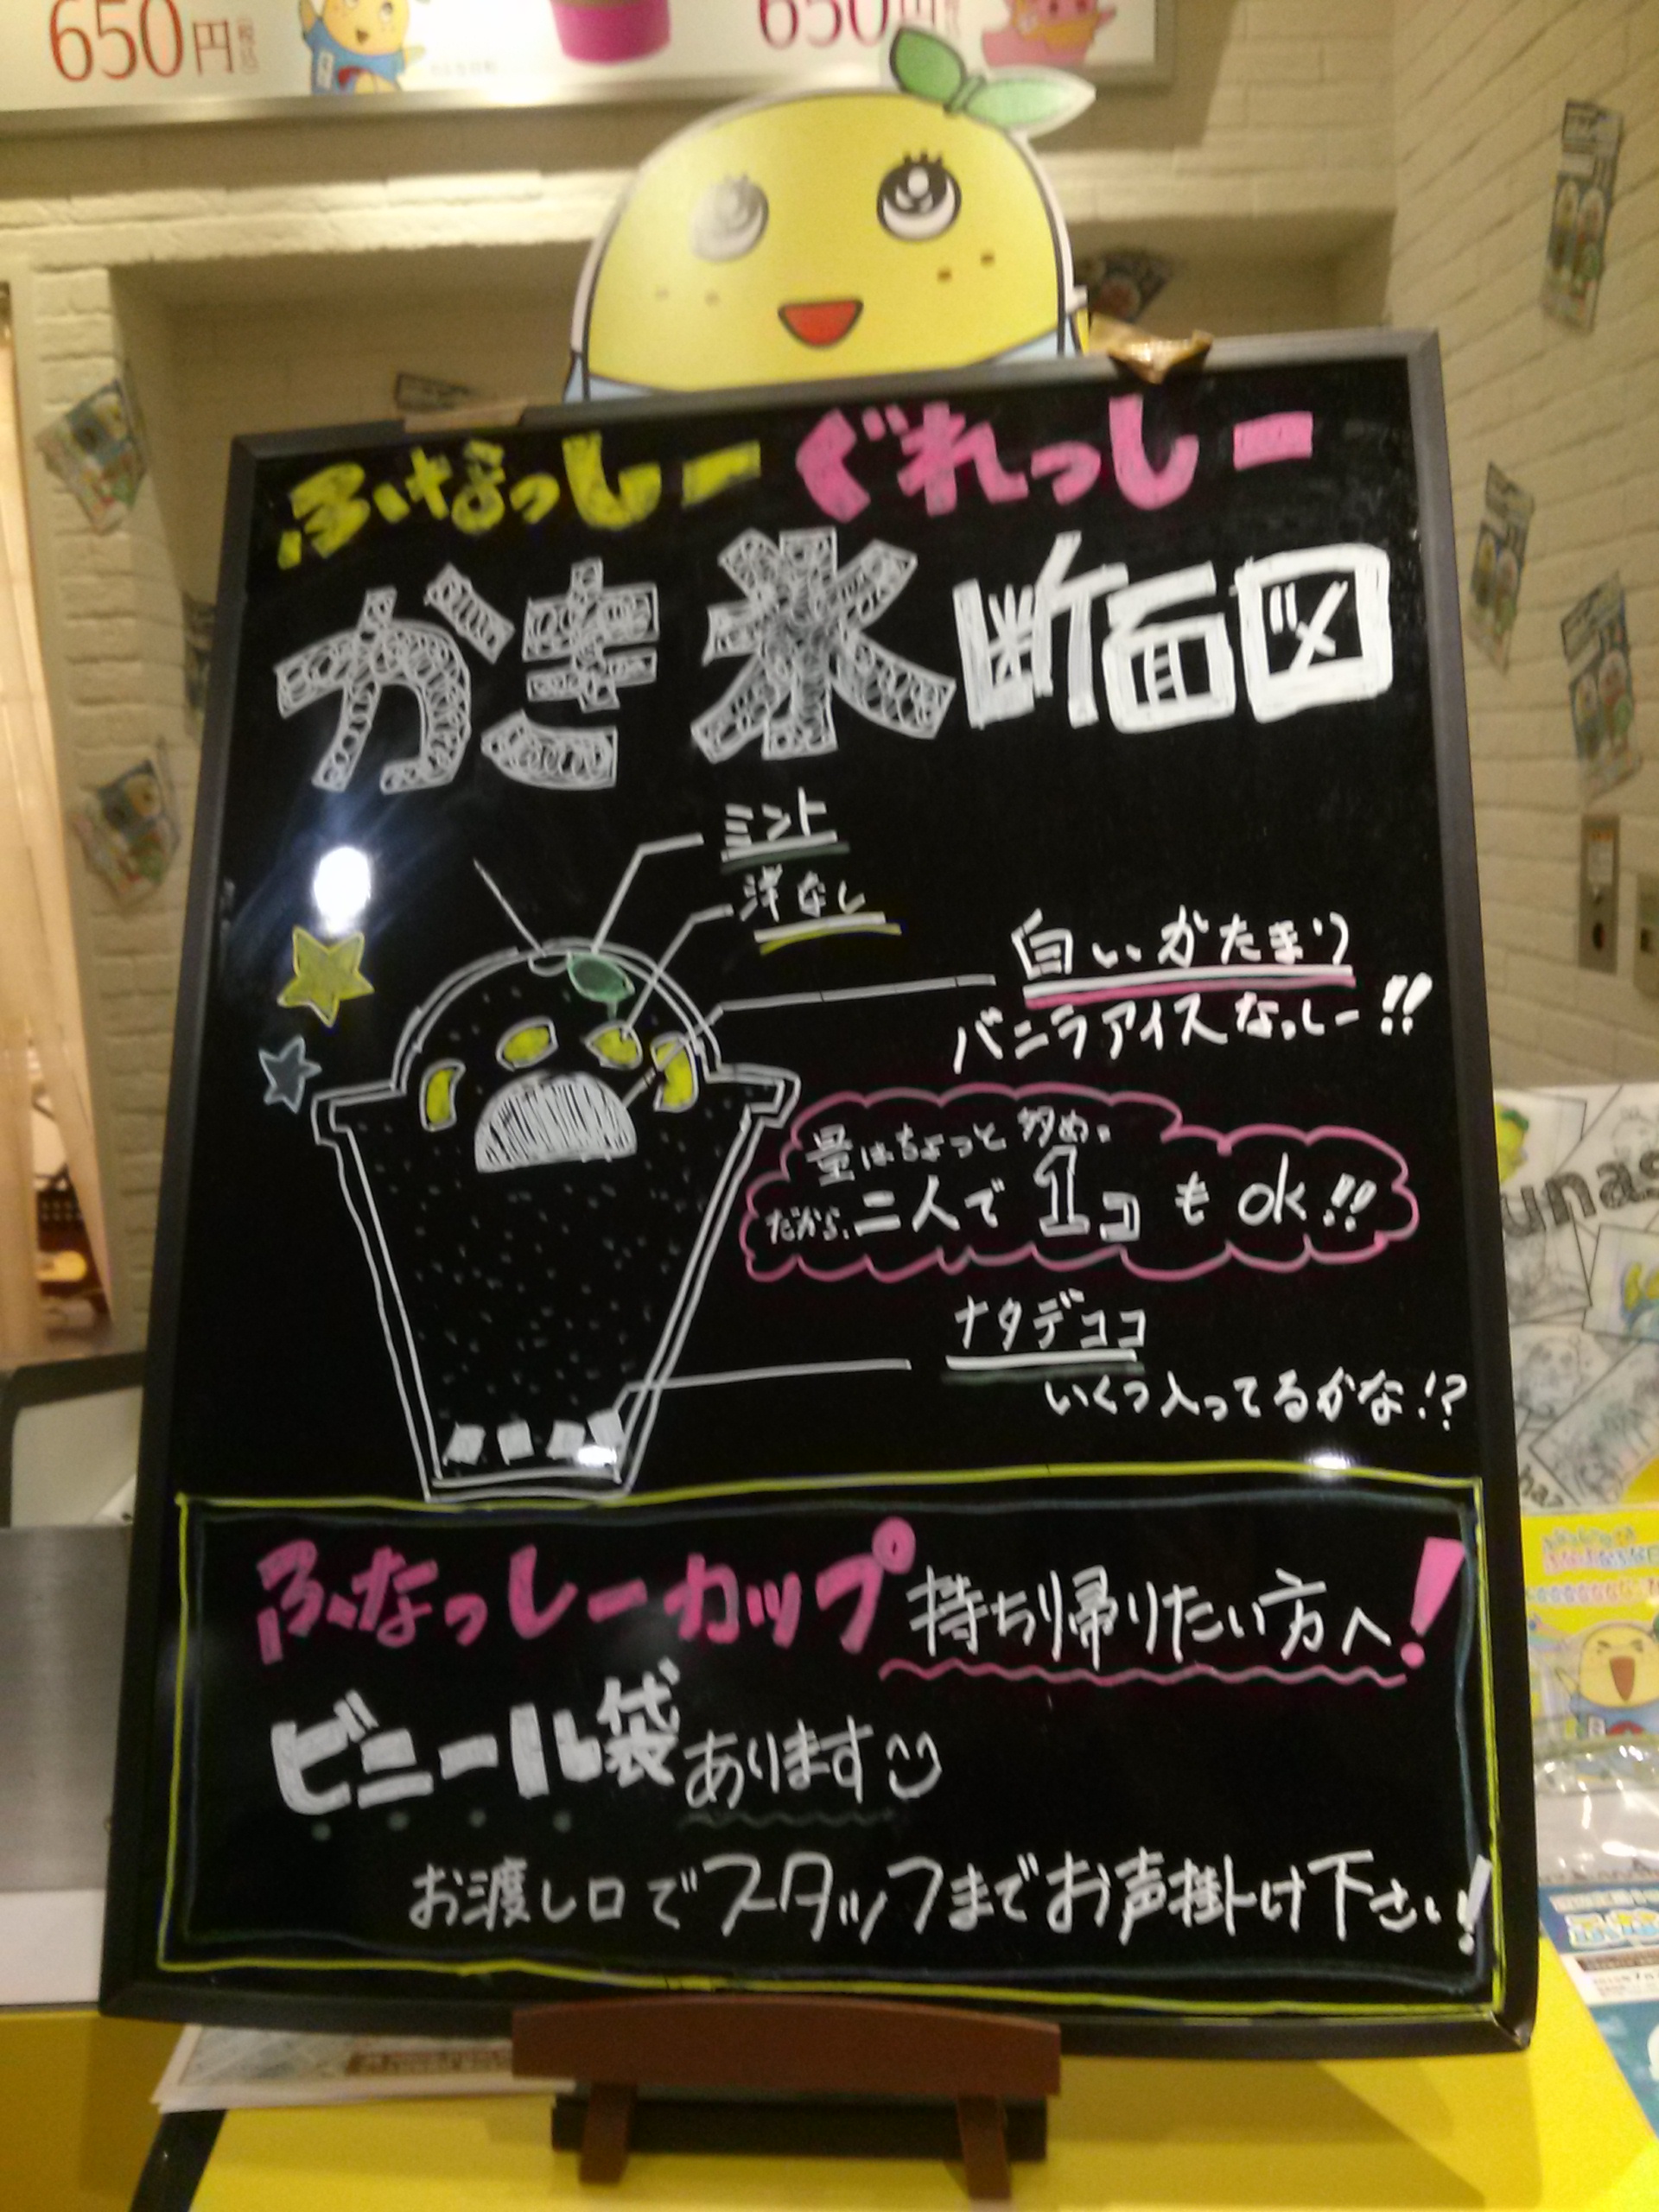 650円
650円
ふなっしーぐれっしー
かき氷断面図
ミント
洋なし
白いかたまり
バニラアイスなっしー!!
量はちょっと多め。
だから、二人で1コもok!!
ナタデココ
いくつ入ってるかな!?
ふなっしーカップ持ち帰りたい方へ!
ビニール袋あります
お渡し口でスタッフまでお声掛け下さい!